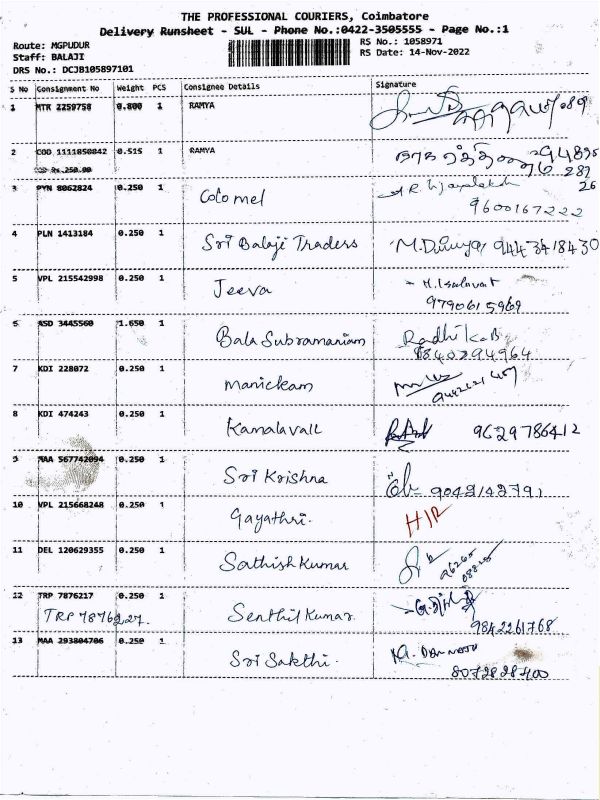 THE PROFESSIONAL COURIERS, Coimbatore
Delivery Runsheet - SUL - Phone No.:0422-3505555 - Page No.:1
Route: MGPUDUR
Staff: BALAJI
DRS No.: DCJB105897101
RS No.: 1058971
RS Date: 14-Nov-2022
S No Consignment No Weight PCS Consignee Details Signature
1 MTR 2259758 0.800 1 RAMYA
2 COD 1111850842 0.515 1 RAMYA
COD Rs.250.00
3 PYN 8062824 0.250 1 Colomel
9600167222
4 PLN 1413184 0.250 1 Sri Balaji Traders M.Divya 9443418430
5 VPL 215542998 0.250 1 Jeeva
9790615969
6 ASD 3445560 1.650 1 Bala Subramaniam Radhika.B
8840294964
7 KDI 228072 0.250 1 Manickam
8 KDI 474243 0.250 1 Kamalavall 9629786412
9 MAA 567742094 0.250 1 Sri Krishna 9042142791
10 VPL 215668248 0.250 1 Gayathri.
11 DEL 120629355 0.250 1 Sathish Kumar
12 TRP 7876217 0.250 1 Senthil Kumar
TRP 7876227. 9842261768
13 MAA 293804706 0.250 1 Sri Sakthi.
8072828400